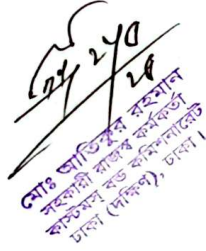 মোঃ আতিকুর রহমান
সহকারী রাজস্ব কর্মকর্তা
কাস্টমস বন্ড কমিশনারেট
ঢাকা (দক্ষিণ), ঢাকা।